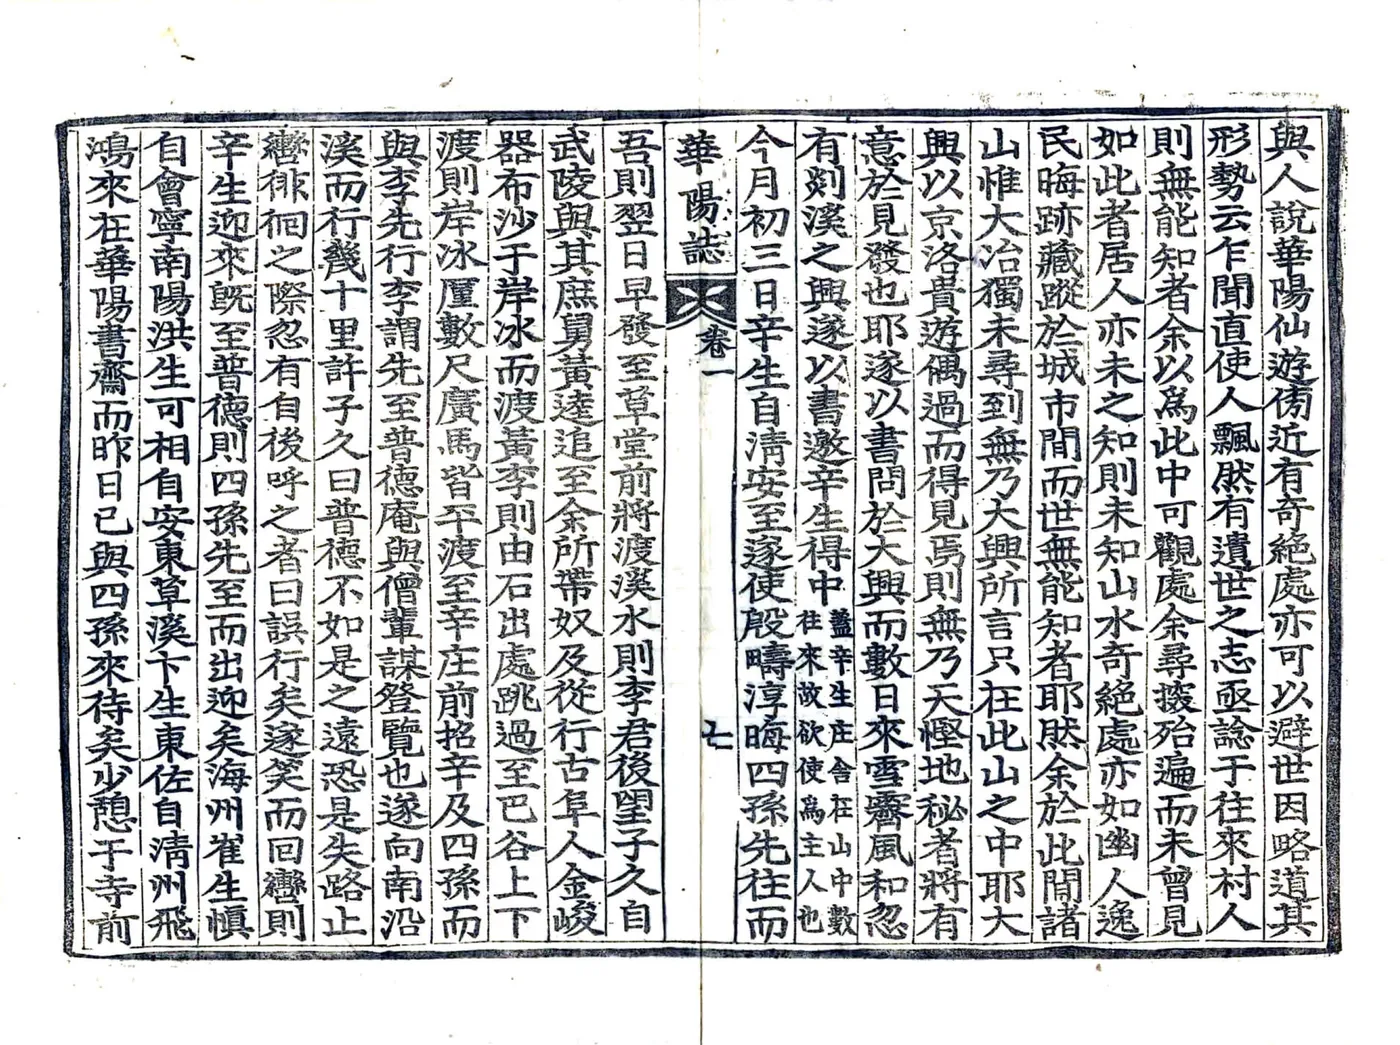 與人說華陽仙遊傍近有奇絶處亦可以避世因略道其
形勢云乍聞直使人飄然有遺世之志亟諗于往來村人
則無能知者余以爲此中可觀處余尋搜殆遍而未曾見
如此者居人亦未之知則未知山水奇絶處亦如幽人逸
民晦跡藏蹤於城市間而世無能知者耶然余於此間諸
山惟大冶獨未尋到無乃大興所言只在此山之中耶大
興以京洛貴遊偶過而得見焉則無乃天慳地秘者將有
意於見發也耶遂以書問於大興而數日來雪霽風和忽
有剡溪之興遂以書邀辛生得中蓋辛生庄舍在山中數往來故欲使爲主人也
今月初三日辛生自淸安至遂使殷疇淳晦四孫先往而
華陽誌 卷一 七
吾則翌日早發至草堂前將渡溪水則李君後望子久自
武陵與其庶舅黃逵追至余所帶奴及從行古阜人金峻
器布沙于岸冰而渡黃李則由石出處跳過至巴谷上下
渡則岸冰厘數尺廣馬皆平渡至辛庄前招辛及四孫而
與李先行李謂先至普德庵與僧輩謀登覽也遂向南沿
溪而行幾十里許子久曰普德不如是之遠恐是失路止
轡徘徊之際忽有自後呼之者曰誤行矣遂笑而回轡則
辛生迎來旣至普德則四孫先至而出迎矣海州崔生愼
自會寧南陽洪生可相自安東草溪卞生東佐自淸州飛
鴻來在華陽書齋而昨日已與四孫來待矣少憩于寺前